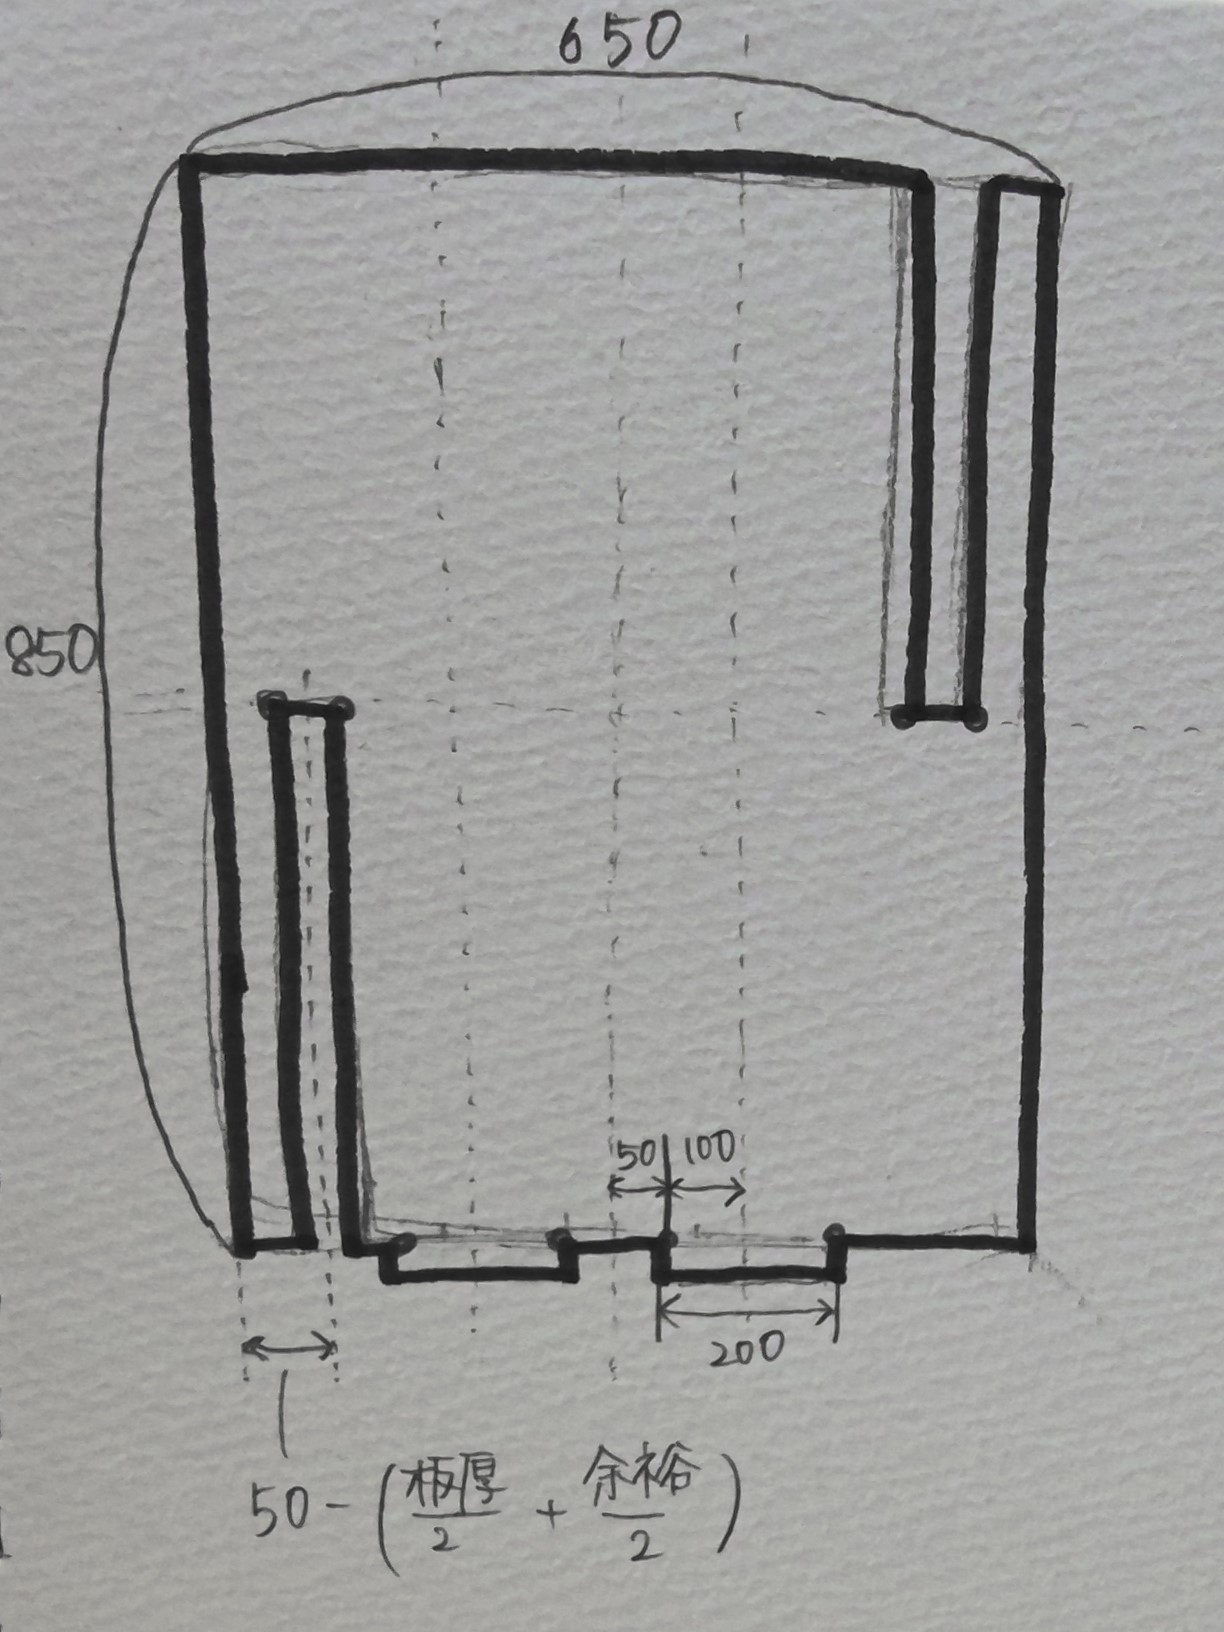 650
850
50 100
200
50-(板厚/2 + 余裕/2)